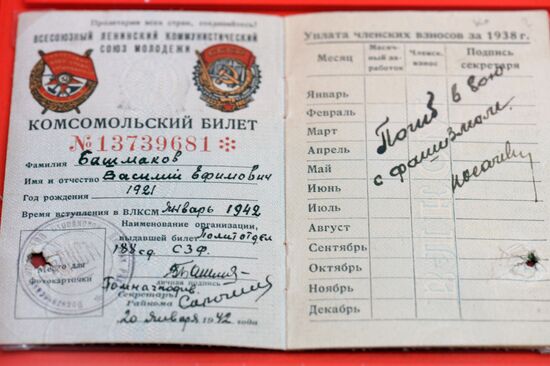 Пролетарии всех стран, соединяйтесь!
ВСЕСОЮЗНЫЙ ЛЕНИНСКИЙ КОММУНИСТИЧЕСКИЙ
СОЮЗ МОЛОДЕЖИ
КОМСОМОЛЬСКИЙ БИЛЕТ
№ 13739681
Фамилия Башмаков
Имя и отчество Василий Ефимович
Год рождения 1921
Время вступления в ВЛКСМ январь 1942
Наименование организации,
выдавшей билет Политотдел
188 сд. СЗФ.
Место для
фотокарточки
личная подпись
Секретарь
Райкома
20 января 1942 года
Уплата членских взносов за 1938 г.
Месяц
Месячный заработок
Членск. взнос
Подпись
секретаря
Январь
Февраль
Март
Апрель
Май
Июнь
Июль
Август
Сентябрь
Октябрь
Ноябрь
Декабрь
Погиб в бою
с фашизмом.